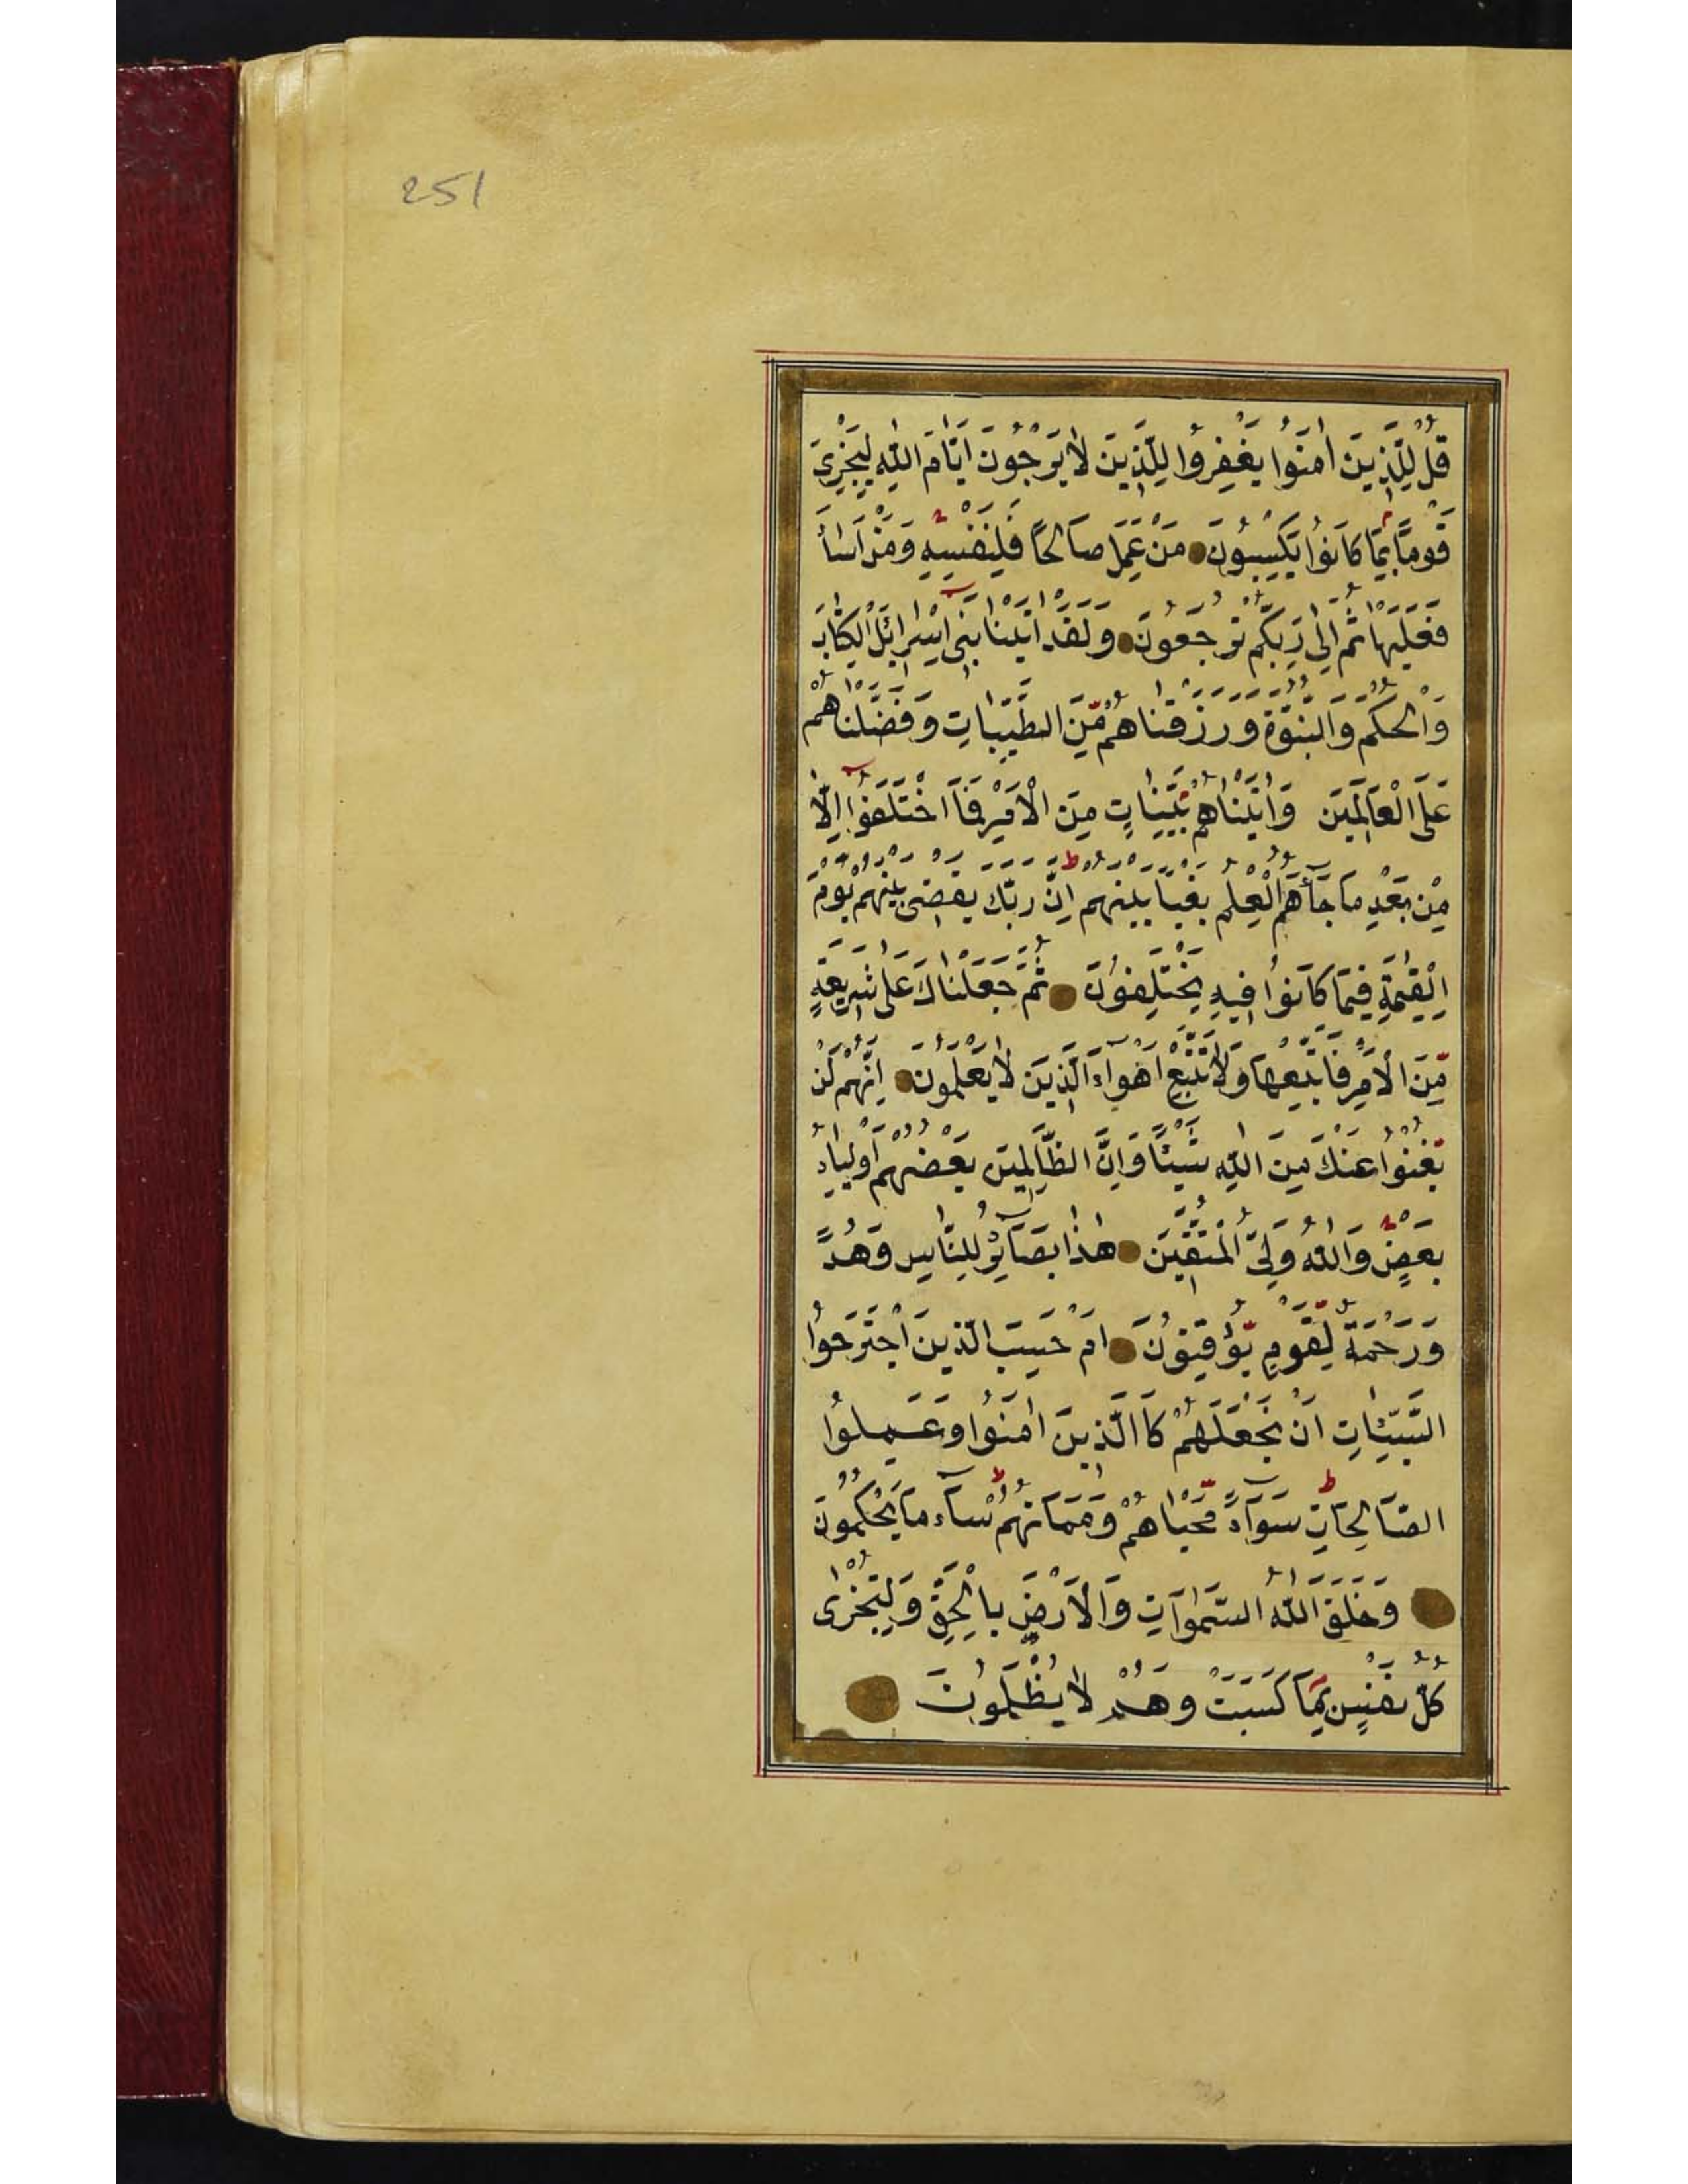 251
قُلْ لِلَّذِينَ اٰمَنُوا يَغْفِرُوا لِلَّذِينَ لَا يَرْجُونَ اَيَّامَ اللّٰهِ لِيَجْزِيَ
قَوْمًا بِمَا كَانُوا يَكْسِبُونَ مَنْ عَمِلَ صَالِحًا فَلِنَفْسِهِ وَمَنْ اَسَاۤءَ
فَعَلَيْهَا ثُمَّ اِلٰى رَبِّكُمْ تُرْجَعُونَ وَلَقَدْ اٰتَيْنَا بَنِۤى اِسْرَائِلَ الْكِتَابَ
وَالْحُكْمَ وَالنُّبُوَّةَ وَرَزَقْنَاهُمْ مِّنَ الطَّيِّبَاتِ وَفَضَّلْنَاهُمْ
عَلَى الْعَالَمِينَ وَاٰتَيْنَاهُمْ بَيِّنَاتٍ مِنَ الْاَمْرِ فَمَا اخْتَلَفُوۤا اِلَّا
مِنْ بَعْدِ مَا جَاۤءَهُمُ الْعِلْمُ بَغْيًا بَيْنَهُمْ اِنَّ رَبَّكَ يَقْضِى بَيْنَهُمْ يَوْمَ
الْقِيٰمَةِ فِيمَا كَانُوا فِيهِ يَخْتَلِفُونَ ثُمَّ جَعَلْنَاكَ عَلٰى شَرِيعَةٍ
مِّنَ الْاَمْرِ فَاتَّبِعْهَا وَلَا تَتَّبِعْ اَهْوَاۤءَ الَّذِينَ لَا يَعْلَمُونَ اِنَّهُمْ لَنْ
يُّغْنُوا عَنْكَ مِنَ اللّٰهِ شَيْئًا وَاِنَّ الظَّالِمِينَ بَعْضُهُمْ اَوْلِيَاۤءُ
بَعْضٍ وَاللّٰهُ وَلِىُّ الْمُتَّقِينَ هٰذَا بَصَاۤئِرُ لِلنَّاسِ وَهُدًى
وَرَحْمَةٌ لِّقَوْمٍ يُّوْقِنُونَ اَمْ حَسِبَ الَّذِينَ اجْتَرَحُوا
السَّيِّئَاتِ اَنْ نَجْعَلَهُمْ كَاالَّذِينَ اٰمَنُوا وَعَمِلُوا
الصَّالِحَاتِ سَوَاۤءً مَّحْيَاهُمْ وَمَمَاتُهُمْ سَاۤءَ مَا يَحْكُمُونَ
وَخَلَقَ اللّٰهُ السَّمٰوَاتِ وَالْاَرْضَ بِالْحَقِّ وَلِتُجْزٰى
كُلُّ نَفْسٍ بِمَا كَسَبَتْ وَهُمْ لَا يُظْلَمُونَ